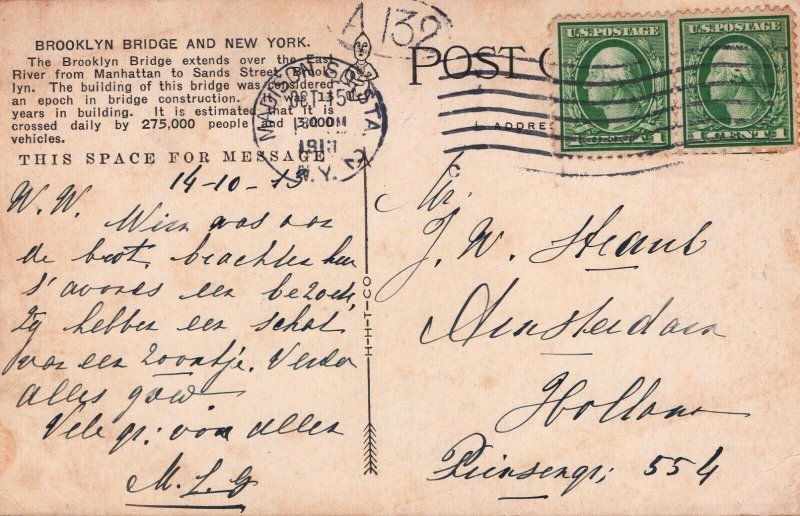 BROOKLYN BRIDGE AND NEW YORK.
The Brooklyn Bridge extends over the East
River from Manhattan to Sands Street, Brook-
lyn. The building of this bridge was considered
an epoch in bridge construction. It was 13
years in building. It is estimated that it is
crossed daily by 275,000 people and 3,000
vehicles.
THIS SPACE FOR MESSAGE
14-10-15
W. W.
Wien was aan
de boot, brachten hem
s'avonds een bezoek,
Zij hebben een schat
van een zoontje. Verder
alles goed
Vele gr: van allen
M. L. G
A 132
MADISON SQ. STA.
N.Y.
H-H-T-CO
POST C
ADDRES
U.S. POSTAGE
1 1
U.S. POSTAGE
1 CENT 1
Mr.
J. W.
Amsterdam
Holland
Prinsengr; 554